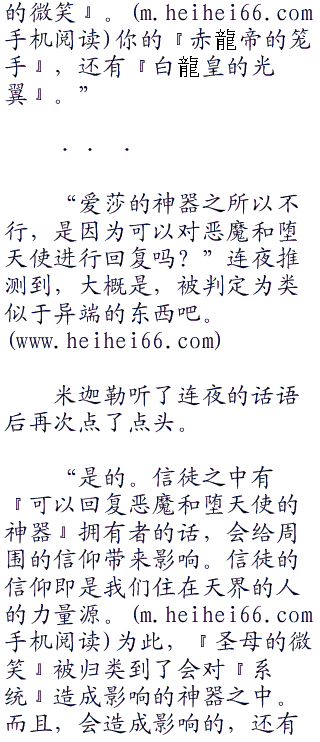 的微笑』。(m.heihei66.com
手机阅读)你的『赤龍帝的笼
手』，还有『白龍皇的光
翼』。”
．．．
“爱莎的神器之所以不
行，是因为可以对恶魔和堕
天使进行回复吗？”连夜推
测到，大概是，被判定为类
似于异端的东西吧。
(www.heihei66.com)
米迦勒听了连夜的话语
后再次点了点头。
“是的。信徒之中有
『可以回复恶魔和堕天使的
神器』拥有者的话，会给周
围的信仰带来影响。信徒的
信仰即是我们住在天界的人
的力量源。(m.heihei66.com
手机阅读)为此，『圣母的微
笑』被归类到了会对『系
统』造成影响的神器之中。
而且，会造成影响的，还有